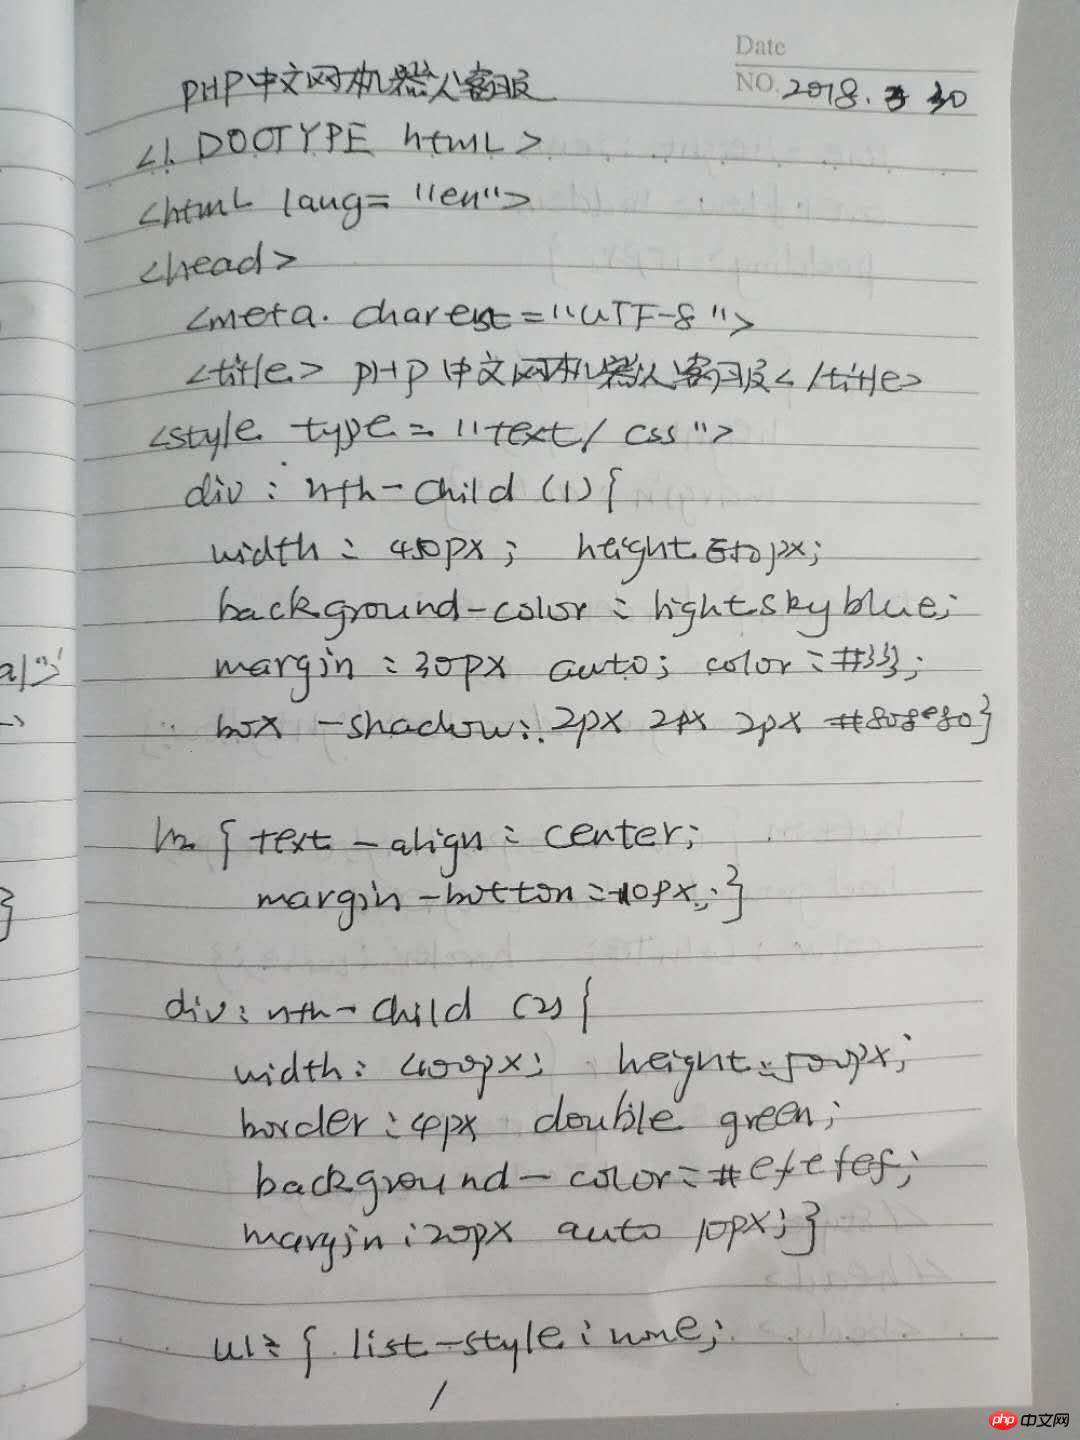 Date
NO. 2018. 3 30
PHP中文网机器人客服
<!. DOCTYPE html>
<html lang= "en">
<head>
<meta. charest="UTF-8">
<title> PHP中文网机器人客服</title>
<style type= "text/ css">
div : nth-child (1) {
width : 450px ; height 550px;
background-color : lightskyblue;
margin : 30px auto; color : #333;
box -shadow: 2px 2px 2px #808080}
h2 { text -align : center;
margin-botton : 10px; }
div : nth-child (2) {
width : 400px; height : 500px;
border : 4px double green;
background-color : #efefef;
margin : 20px auto 10px; }
ul : { list-style : none;
a|
}
php 中文网